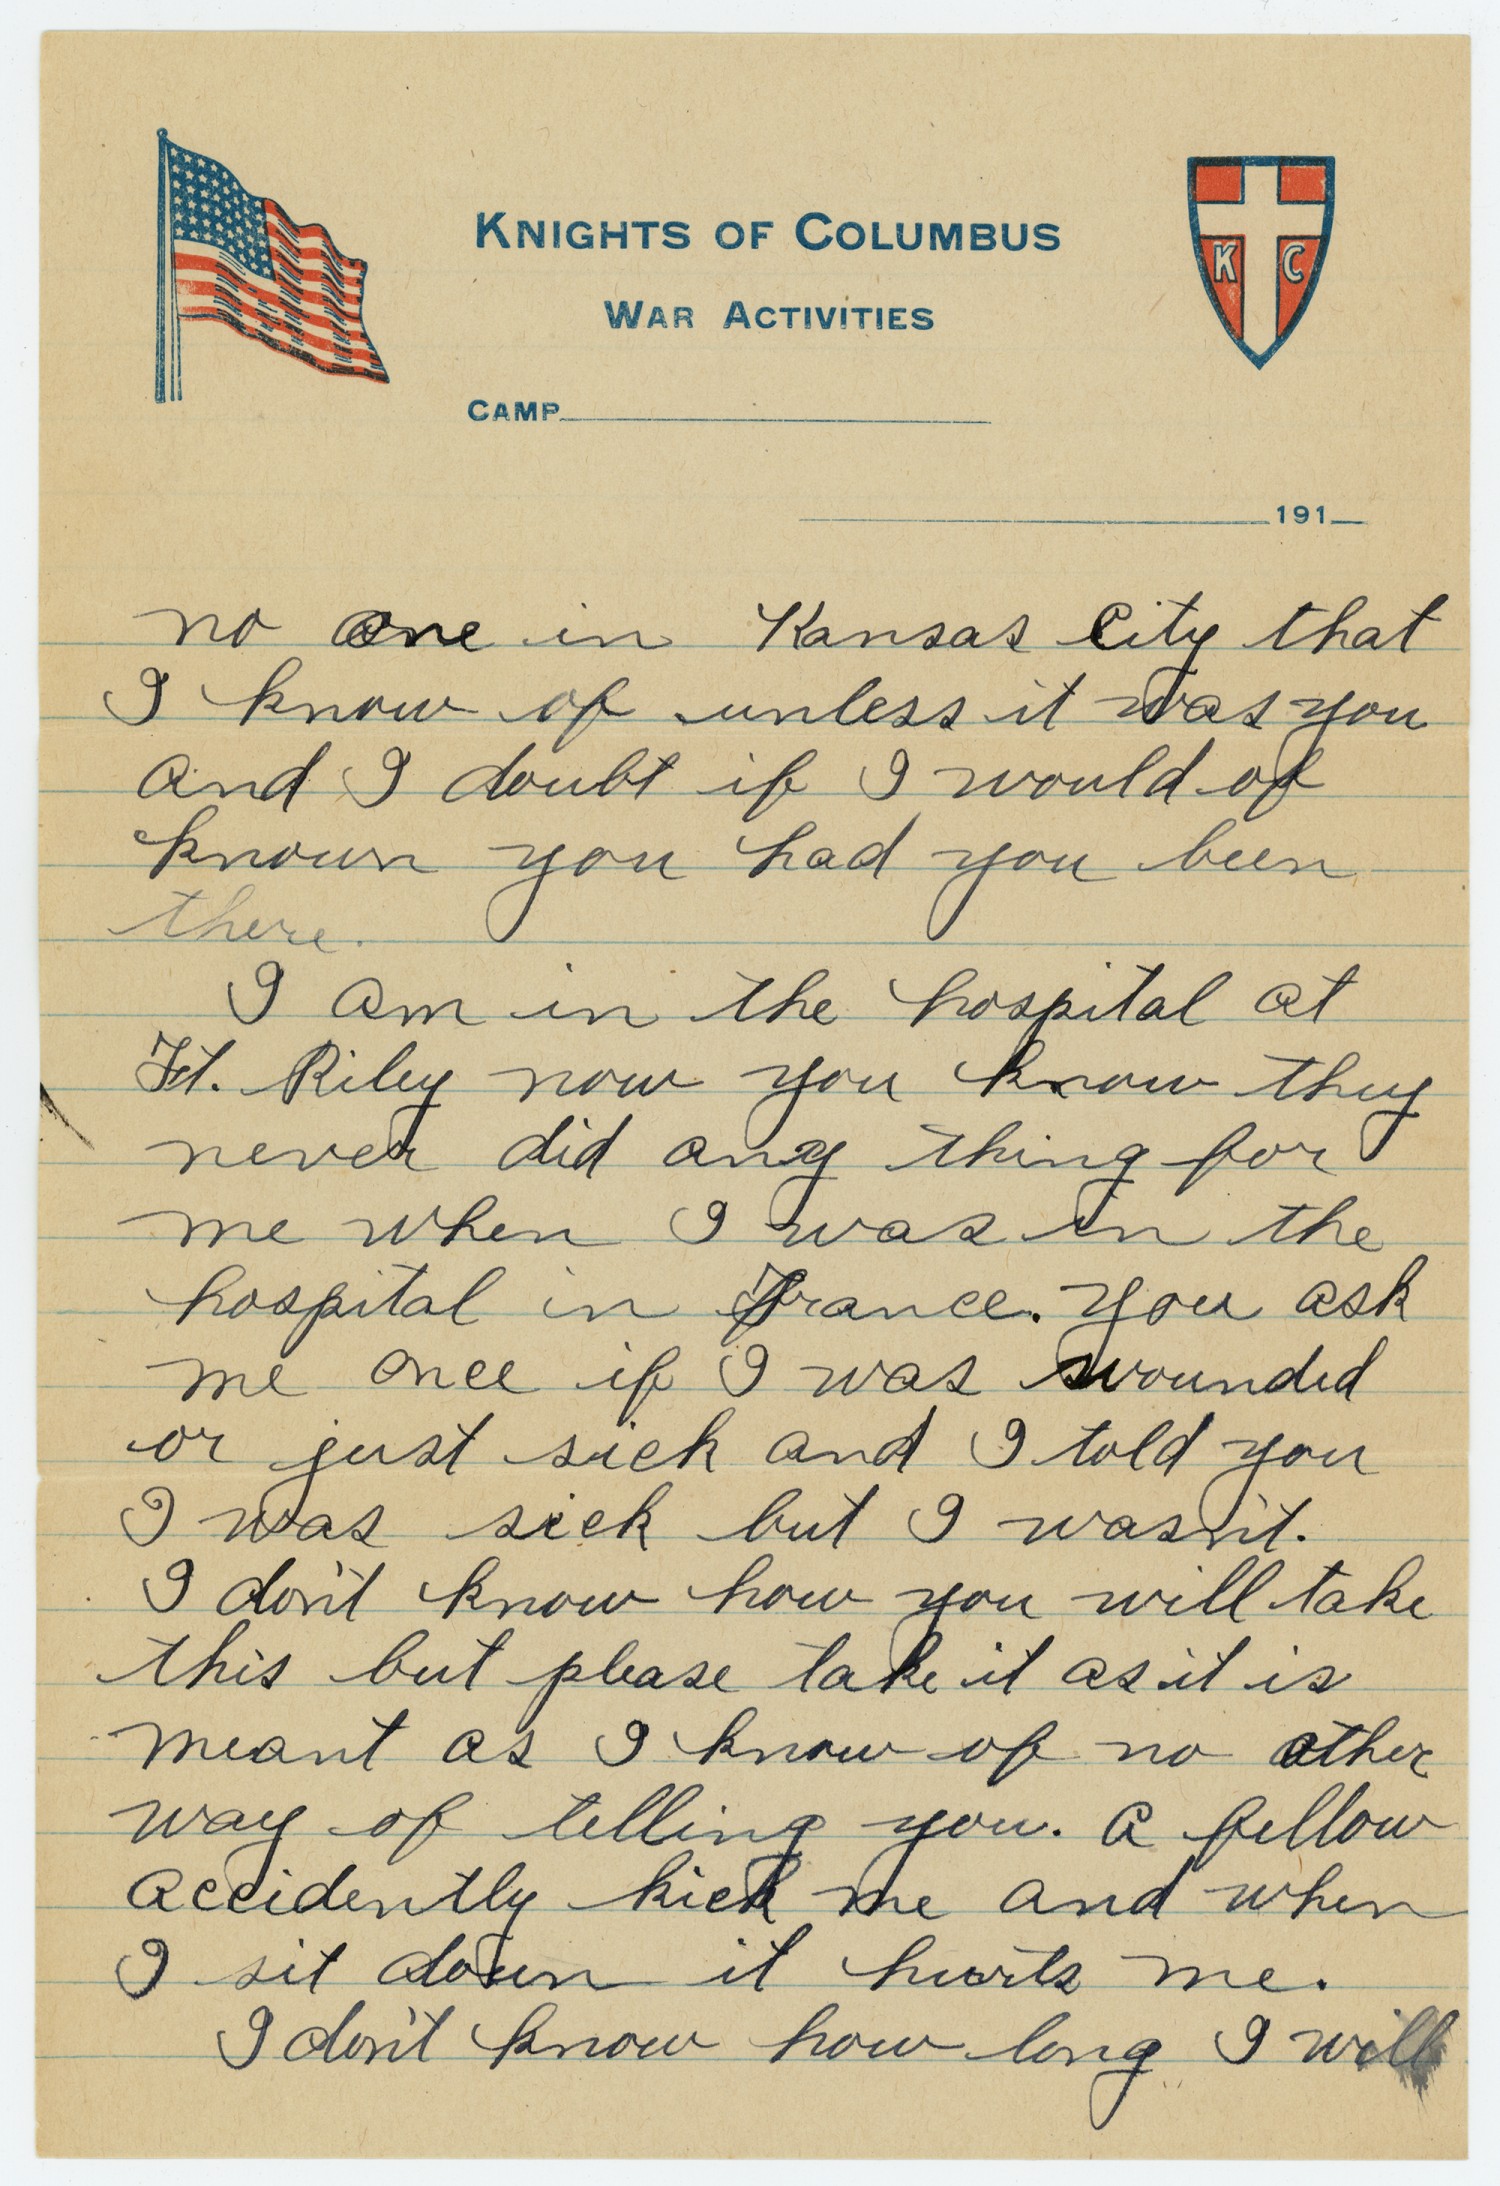 KNIGHTS OF COLUMBUS
WAR ACTIVITIES
K C
CAMP
191
no one in Kansas City that
I know of unless it was you
and I doubt if I would of
known you had you been
there.
I am in the hospital at
Ft. Riley now you know they
never did any thing for
me when I was in the
hospital in France. You ask
me once if I was wounded
or just sick and I told you
I was sick but I wasn't.
I don't know how you will take
this but please take it as it is
meant as I know of no other
way of telling you. A fellow
accidently kick me and when
I sit down it hurts me.
I don't know how long I will